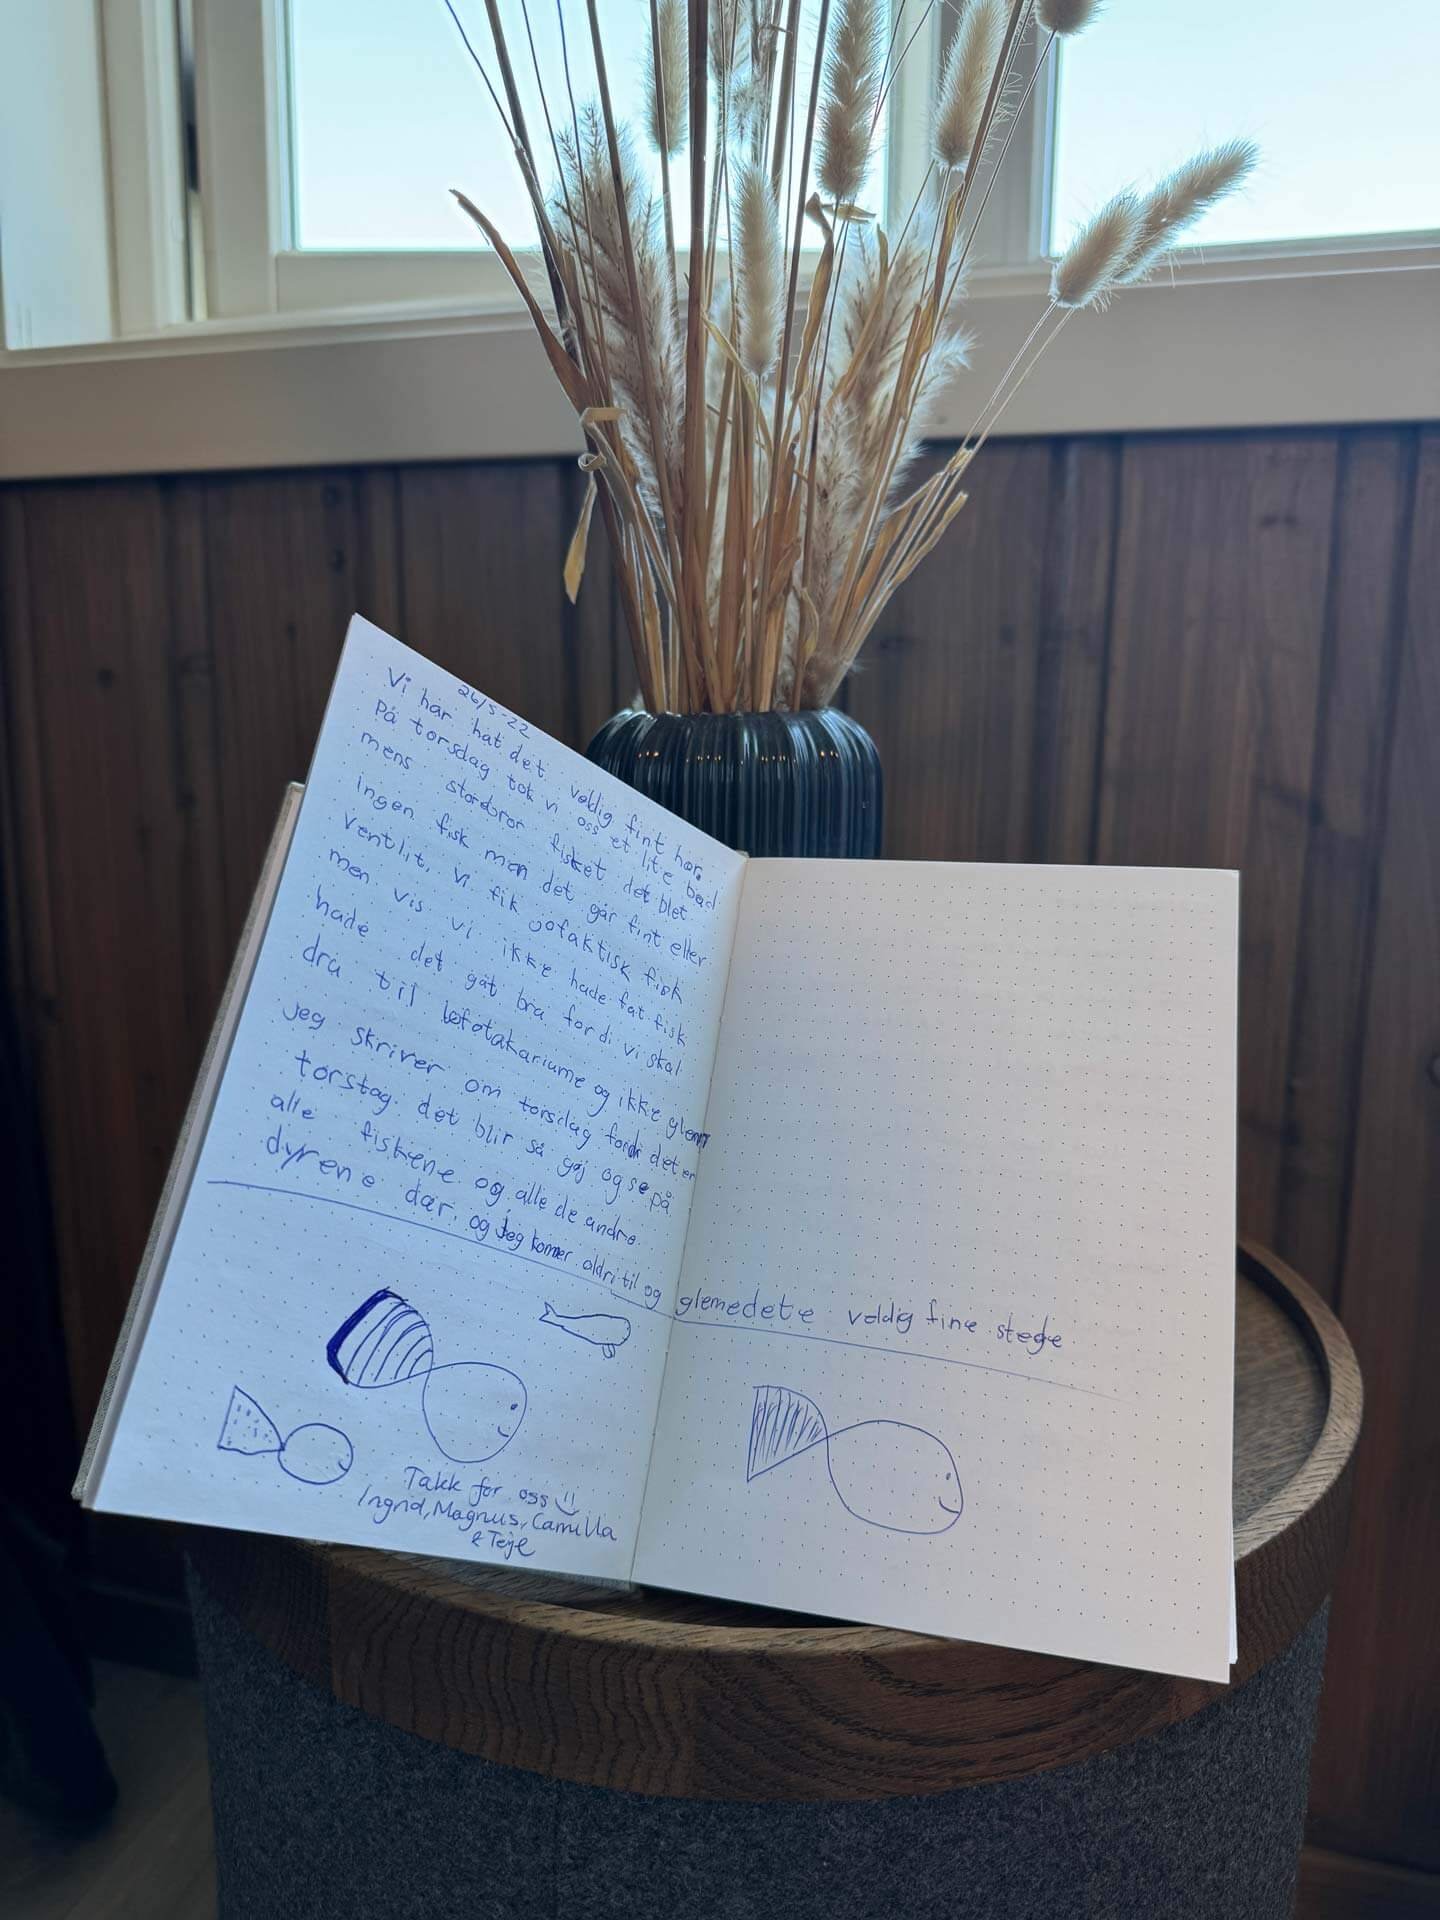 26/5-22
Vi har hat det veldig fint her.
På torsdag tok vi oss et lite bad
mens storebror fisket det blet
ingen fisk men det går fint eller
ventlit, vi fik jofaktisk fisk
men vis vi ikke hade fat fisk
hade det gåt bra fordi vi skal
dra til lofotakariume og ikke glem
jeg skriver om torsdag fordi det er
torstag. det blir så gøj og se på
alle fiskene og alle de andre
dyrene dær. og jeg komer aldri til og glemedete veldig fine stede
Takk for oss
Ingrid, Magnus, Camilla
& Terje